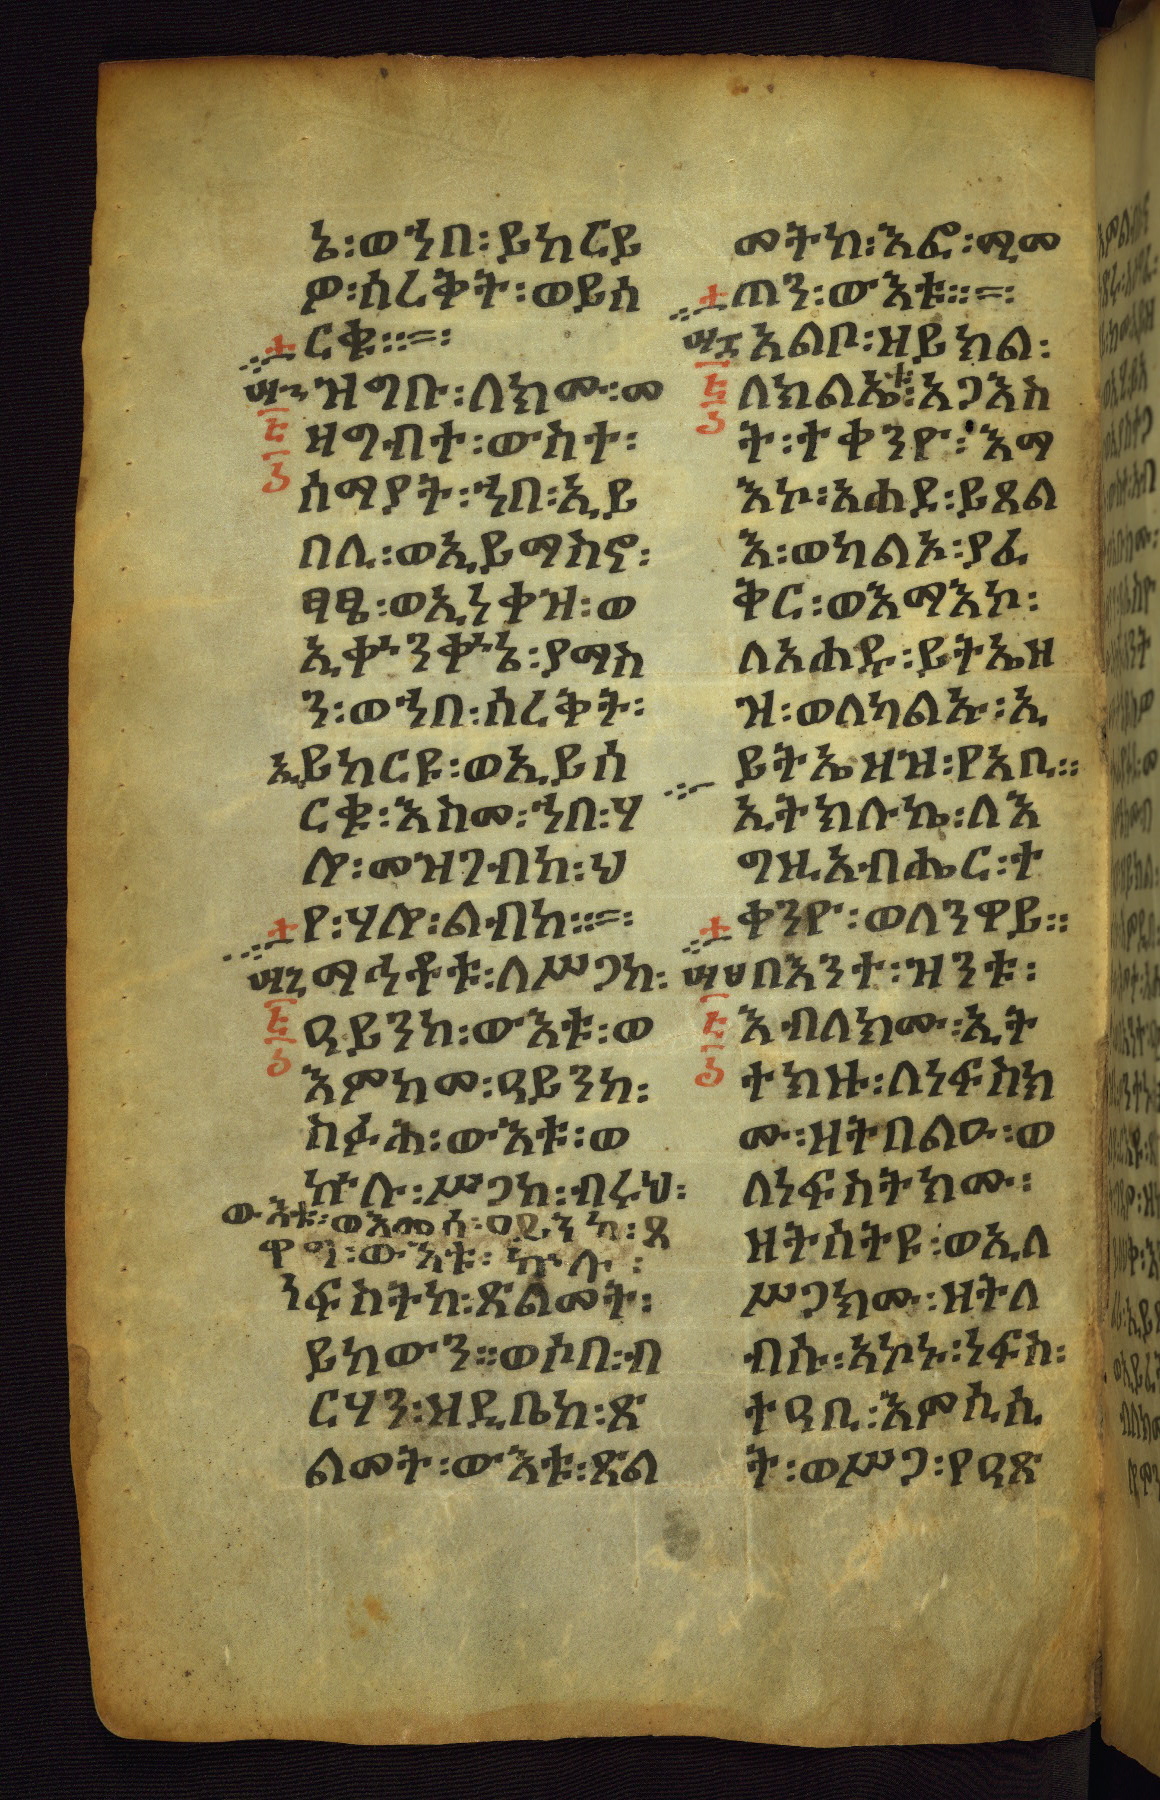 ኔ፡ወኀበ፡ይከርይ
ዎ፡ሰረቅት፡ወይሰ
ርቁ።=፡
ዝግቡ፡ለክሙ፡መ
ዝግብተ፡ውስተ፡
ሰማያት፡ኀበ፡ኢይ
በሊ፡ወኢይማስኖ፡
ፃፄ፡ወኢነቀዝ፡ወ
ኢቍንቍኔ፡ያማስ
ን፡ወኀበ፡ሰረቅት፡
ኢይከርዩ፡ወኢይሰ
ርቁ፡እስመ፡ኀበ፡ሃ
ሎ፡መዝገብከ፡ህ
የ፡ሃሎ፡ልብከ።=፡
ማኅቶቱ፡ለሥጋከ፡
ዓይንከ፡ውእቱ፡ወ
እምከመ፡ዓይንከ፡
ስፉሕ፡ውእቱ፡ወ
ኵሉ፡ሥጋከ፡ብሩህ፡
ውእቱ፡ወእመሰ፡ዓይንከ፡ጸ
ዋግ፡ውእቱ፡ኵሉ፡
ነፍስትከ፡ጽልመት፡
ይከውን።ወሶበ፡ብ
ርሃን፡ዝዲቤከ፡ጽ
ልመት፡ውእቱ፡ጽል
መትከ፡እፎ፡ሚመ
ጠን፡ውእቱ።=፡
አልቦ፡ዘይክል፡
ለክልኤቱ፡አጋእስ
ት፡ተቀንዮ፡እማ
እኮ፡አሐደ፡ይጸል
እ፡ወካልአ፡ያፈ
ቅር፡ወእማእኮ፡
ለአሐዱ፡ይትኤዘ
ዝ፡ወለካልኡ፡ኢ
ይትኤዘዝ፡የአቢ።
ኢትክሉኬ፡ለእ
ግዚአብሔር፡ተ
ቀንዮ፡ወለንዋይ።
በእንተ፡ዝንቱ፡
እብለክሙ፡ኢት
ተክዙ፡ለነፍስክ
ሙ፡ዘትበልዑ፡ወ
ለነፍስትክሙ፡
ዘትሰትዩ፡ወኢለ
ሥጋክሙ፡ዘትለ
ብሱ፡አኮኑ፡ነፍስ፡
ተዓቢ፡እምሲሲ
ት፡ወሥጋ፡የዓጽ